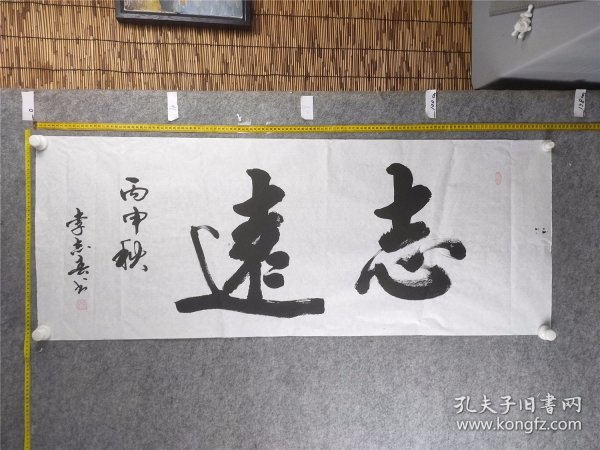 志遠
丙申秋
李志春书
0
100cm
孔夫子旧书网
www.kongfz.com